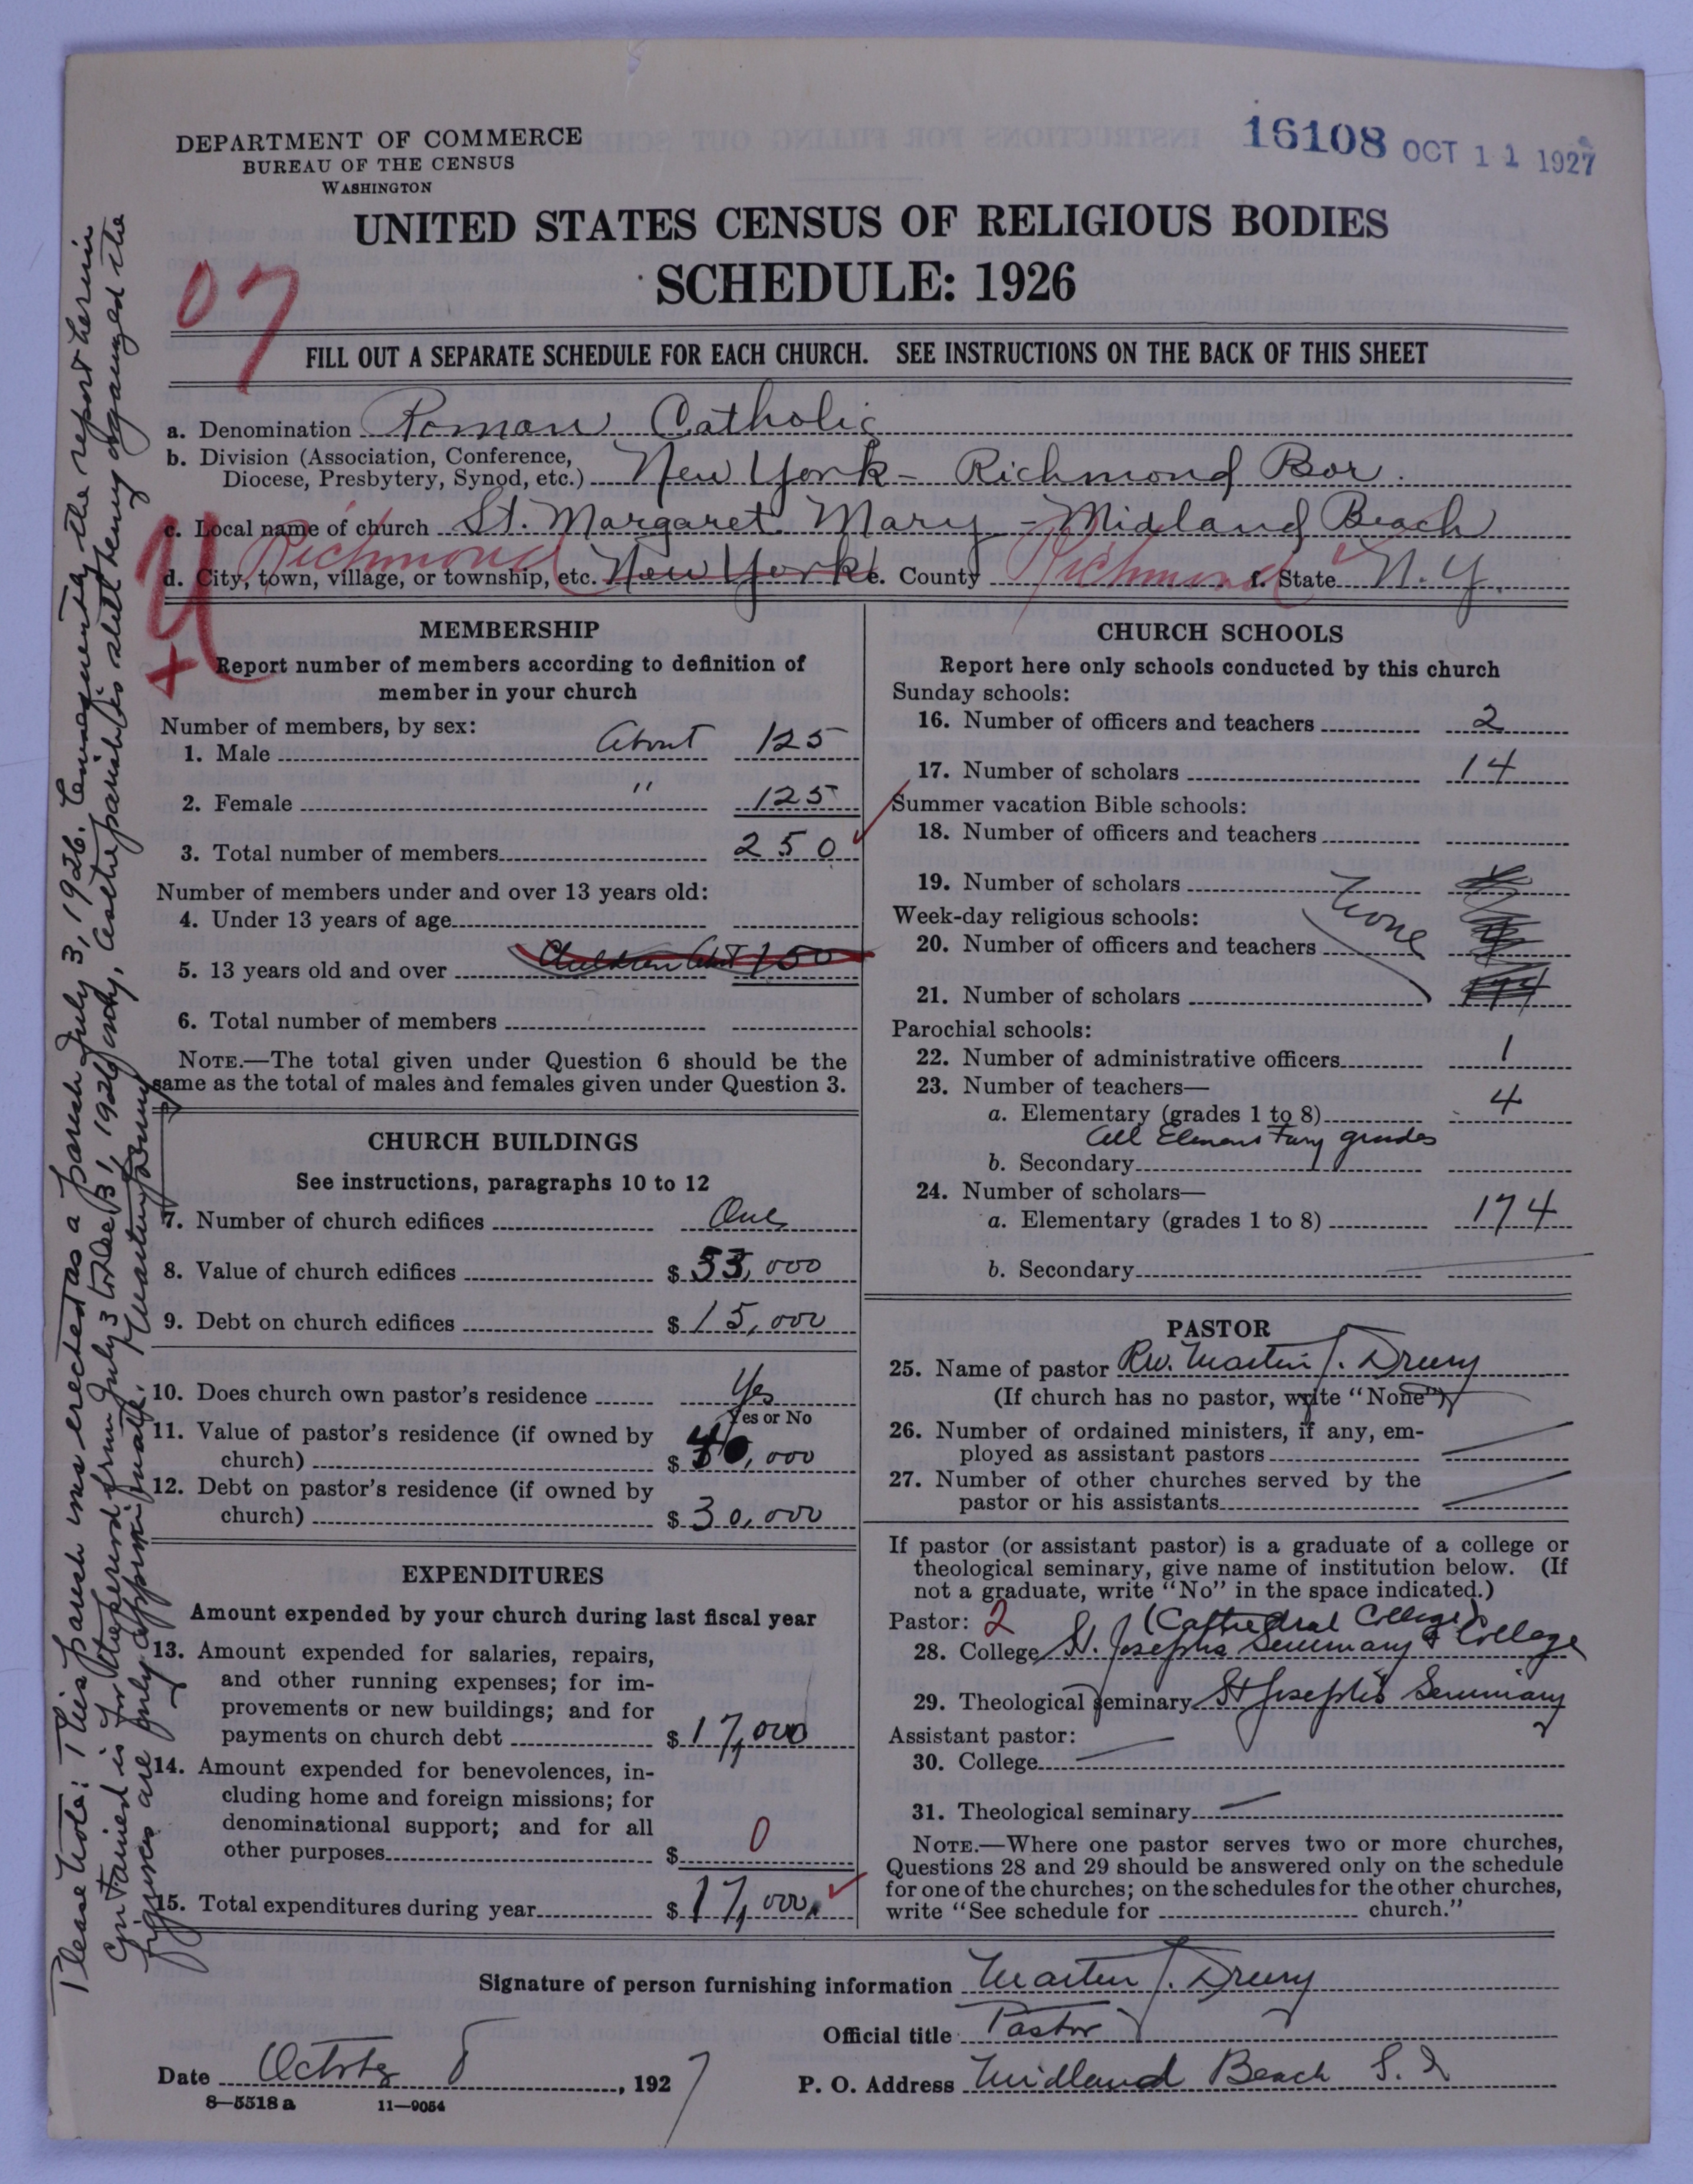 16108 OCT 11 1927
DEPARTMENT OF COMMERCE
BUREAU OF THE CENSUS
WASHINGTON
UNITED STATES CENSUS OF RELIGIOUS BODIES
SCHEDULE: 1926
07
FILL OUT A SEPARATE SCHEDULE FOR EACH CHURCH. SEE INSTRUCTIONS ON THE BACK OF THIS SHEET
a. Denomination Roman Catholic
b. Division (Association, Conference,
Diocese, Presbytery, Synod, etc.) New York - Richmond Bor.
c. Local name of church St. Margaret Mary - Midland Beach
d. City, town, village, or township, etc. Richmond New York e. County Richmond f. State N.Y.
MEMBERSHIP
Report number of members according to definition of
member in your church
Number of members, by sex:
1. Male About 125
2. Female " 125
3. Total number of members 250
Number of members under and over 13 years old:
4. Under 13 years of age
5. 13 years old and over Children abt 150
6. Total number of members
NOTE.—The total given under Question 6 should be the
same as the total of males and females given under Question 3.
CHURCH BUILDINGS
See instructions, paragraphs 10 to 12
7. Number of church edifices One
8. Value of church edifices $ 53,000
9. Debt on church edifices $ 15,000
10. Does church own pastor's residence Yes
Yes or No
11. Value of pastor's residence (if owned by
church) $ 40,000
12. Debt on pastor's residence (if owned by
church) $ 30,000
EXPENDITURES
Amount expended by your church during last fiscal year
13. Amount expended for salaries, repairs,
and other running expenses; for im-
provements or new buildings; and for
payments on church debt $ 17,000
14. Amount expended for benevolences, in-
cluding home and foreign missions; for
denominational support; and for all
other purposes $ 0
15. Total expenditures during year $ 17,000
CHURCH SCHOOLS
Report here only schools conducted by this church
Sunday schools:
16. Number of officers and teachers 2
17. Number of scholars 14
Summer vacation Bible schools:
18. Number of officers and teachers
19. Number of scholars
None
Week-day religious schools:
20. Number of officers and teachers
21. Number of scholars
Parochial schools:
22. Number of administrative officers 1
23. Number of teachers—
a. Elementary (grades 1 to 8) 4
All Elementary grades
b. Secondary
24. Number of scholars—
a. Elementary (grades 1 to 8) 174
b. Secondary
PASTOR
25. Name of pastor Rev. Martin J. Drury
(If church has no pastor, write "None")
26. Number of ordained ministers, if any, em-
ployed as assistant pastors
27. Number of other churches served by the
pastor or his assistants
If pastor (or assistant pastor) is a graduate of a college or
theological seminary, give name of institution below. (If
not a graduate, write "No" in the space indicated.)
Pastor: 2 (Cathedral College)
28. College St. Josephs Seminary & College
29. Theological seminary St Joseph's Seminary
Assistant pastor:
30. College
31. Theological seminary
NOTE.—Where one pastor serves two or more churches,
Questions 28 and 29 should be answered only on the schedule
for one of the churches; on the schedules for the other churches,
write "See schedule for church."
Signature of person furnishing information Martin J. Drury
Official title Pastor
Date October 8, 1927 P. O. Address Midland Beach S. I.
8—5518 a 11—9054
Please note: This parish was erected as a parish July 3, 1926. Consequently the report herein
contained is for the period from July 3 to Dec 31, 1926 only, as the parish is still being organized the
figures are only approximate. Martin J Drury